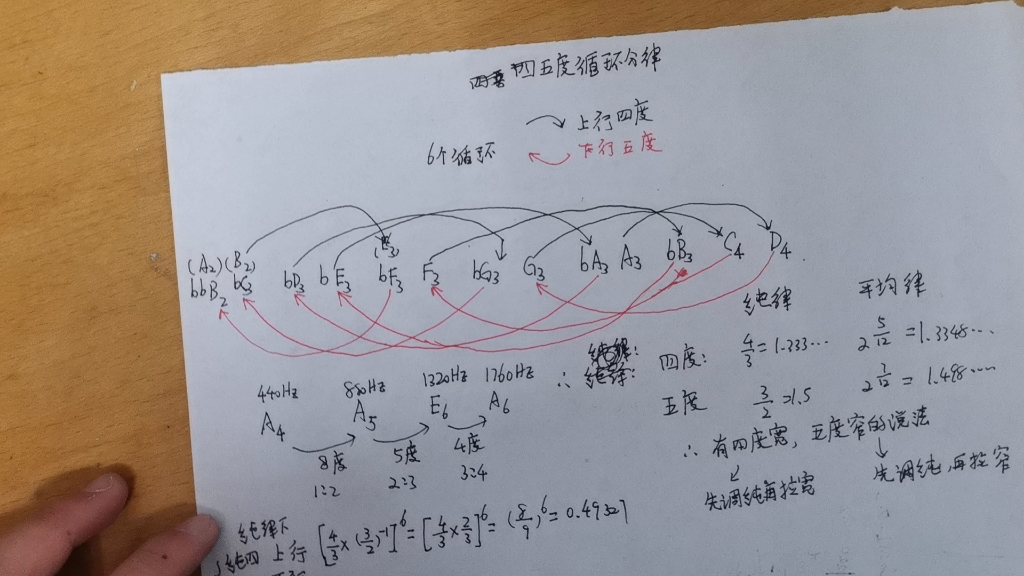 四五度循环分律
上行四度
6个循环 下行五度
(A2)(B2) (E3)
bbB2 bC3 bD3 bE3 bF3 F3 bG3 G3 bA3 A3 bB3 C4 D4
纯律 平均律
∴ 纯律: 四度: 4/3=1.333… 2^(5/12)=1.3348…
五度 3/2=1.5 2^(7/12)=1.498……
440Hz 880Hz 1320Hz 1760Hz
A4 A5 E6 A6
8度 5度 4度
1:2 2:3 3:4
∴ 有四度宽, 五度窄的说法
先调纯再拉宽 先调纯,再拉窄
纯律下
纯四 上行 [4/3×(3/2)^-1]^6=[4/3×2/3]^6=(8/9)^6=0.4932